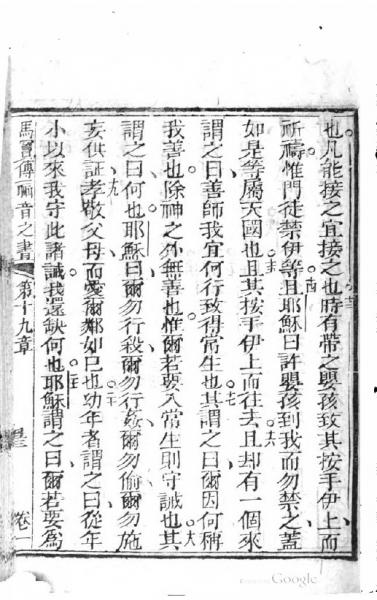 也凡能接之宜接之也時有帶之嬰孩致其按手伊上而
祈禱惟門徒禁伊等且耶穌曰許嬰孩到我而勿禁之蓋
如是等屬天國也且其按手伊上而往去且却有一個來
謂之曰善師我宜何行致得常生也其謂之曰爾因何稱
我善也除神之外無善也惟爾若要入常生則守誡也其
謂之曰何也耶穌曰爾勿行殺爾勿行姦爾勿偷爾勿施
妄供証孝敬父母而愛爾鄰如己也幼年者謂之曰從年
小以來我守此諸誡我還缺何也耶穌謂之曰爾若要為
馬竇傳福音之書 第十九章 卷一
Google